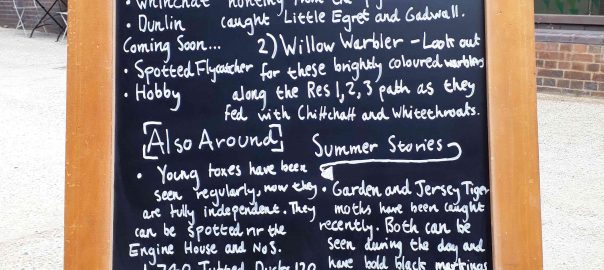 • Whinchat
• Dunlin
Coming Soon...
• Spotted Flycatcher
• Hobby
hunting from the
caught Little Egret and Gadwall.
2) Willow Warbler - Look out
for these brightly coloured warblers
along the Res 1, 2, 3 path as they
fed with Chiffchaff and Whitethroats.
[Also Around]
• Young foxes have been
seen regularly, now they
are fully independent. They
can be spotted nr the
Engine House and No5.
Tufted Ducks 120
Summer Stories
• Garden and Jersey Tiger
moths have been caught
recently. Both can be
seen during the day and
have bold black markings